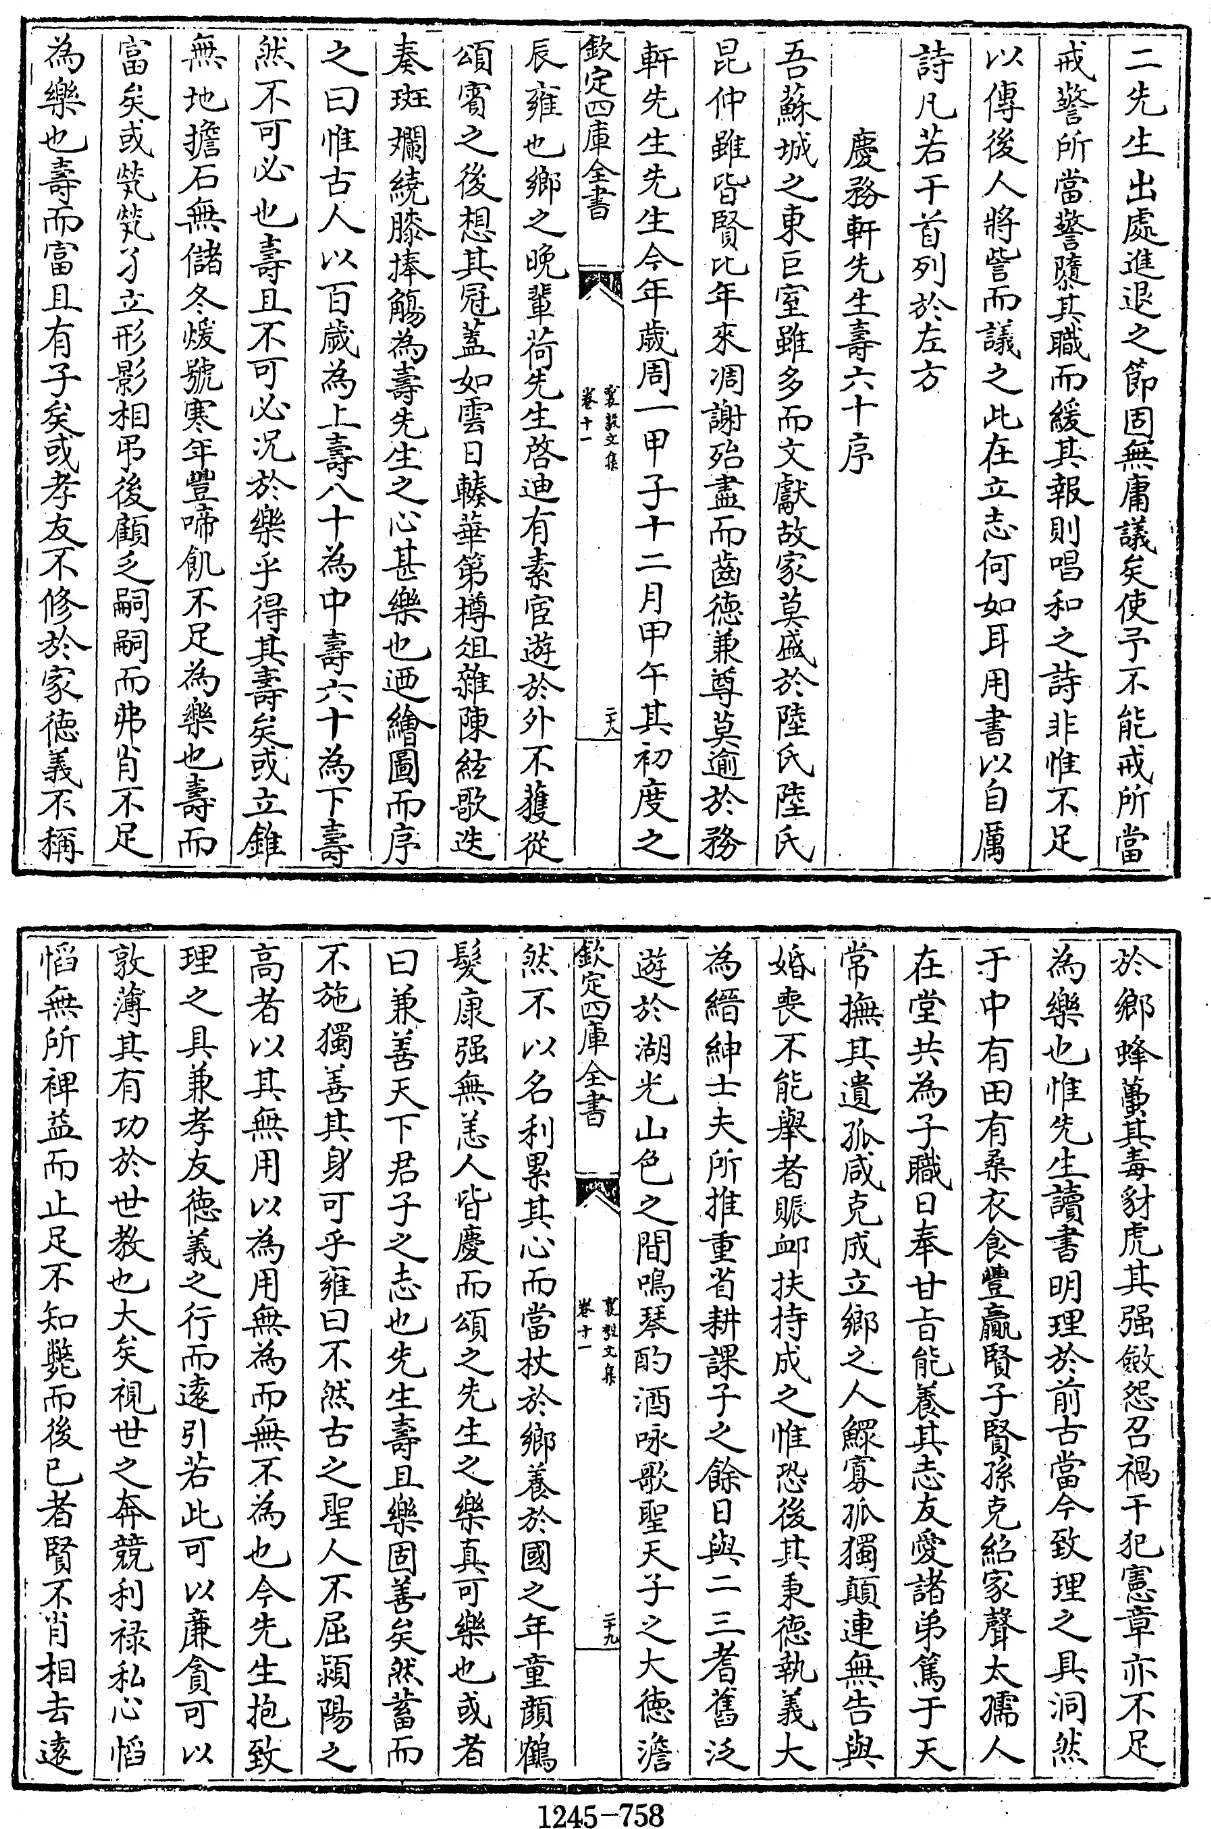 二先生出處進退之節固無庸議矣使予不能戒所當
戒警所當警隳其職而緩其報則唱和之詩非惟不足
以傳後人將訾而議之此在立志何如耳用書以自厲
詩凡若干首列於左方
慶務軒先生壽六十序
吾蘇城之東巨室雖多而文獻故家莫盛於陸氏陸氏
昆仲雖皆賢比年來凋謝殆盡而齒德兼尊莫逾於務
軒先生先生今年歲周一甲子十二月甲午其初度之
欽定四庫全書
襄毅文集
卷十一
二十八
辰雍也鄉之晚輩荷先生啓迪有素宦遊於外不獲從
頌賓之後想其冠蓋如雲日轃華第樽俎雜陳絃歌迭
奏斑斕繞膝捧觴為壽先生之心甚樂也迺繪圖而序
之曰惟古人以百歲為上壽八十為中壽六十為下壽
然不可必也壽且不可必況於樂乎得其壽矣或立錐
無地擔石無儲冬煖號寒年豐啼飢不足為樂也壽而
富矣或煢煢孑立形影相弔後顧乏嗣嗣而弗肖不足
為樂也壽而富且有子矣或孝友不修於家德義不稱
於鄉蜂蠆其毒豺虎其强斂怨召禍干犯憲章亦不足
為樂也惟先生讀書明理於前古當今致理之具洞然
于中有田有桑衣食豐贏賢子賢孫克紹家聲太孺人
在堂共為子職日奉甘旨能養其志友愛諸弟篤于天
常撫其遺孤咸克成立鄉之人鰥寡孤獨顛連無告與
婚喪不能舉者賑卹扶持成之惟恐後其秉德執義大
為縉紳士夫所推重省耕課子之餘日與二三耆舊泛
遊於湖光山色之間鳴琴酌酒咏歌聖天子之大德澹
欽定四庫全書
襄毅文集
卷十一
二十九
然不以名利累其心而當杖於鄉養於國之年童顔鶴
髮康强無恙人皆慶而頌之先生之樂真可樂也或者
曰兼善天下君子之志也先生壽且樂固善矣然蓄而
不施獨善其身可乎雍曰不然古之聖人不屈潁陽之
高者以其無用以為用無為而無不為也今先生抱致
理之具兼孝友德義之行而遠引若此可以廉貪可以
敦薄其有功於世教也大矣視世之奔競利禄私心慆
慆無所裨益而止足不知斃而後已者賢不肖相去遠
1245-758